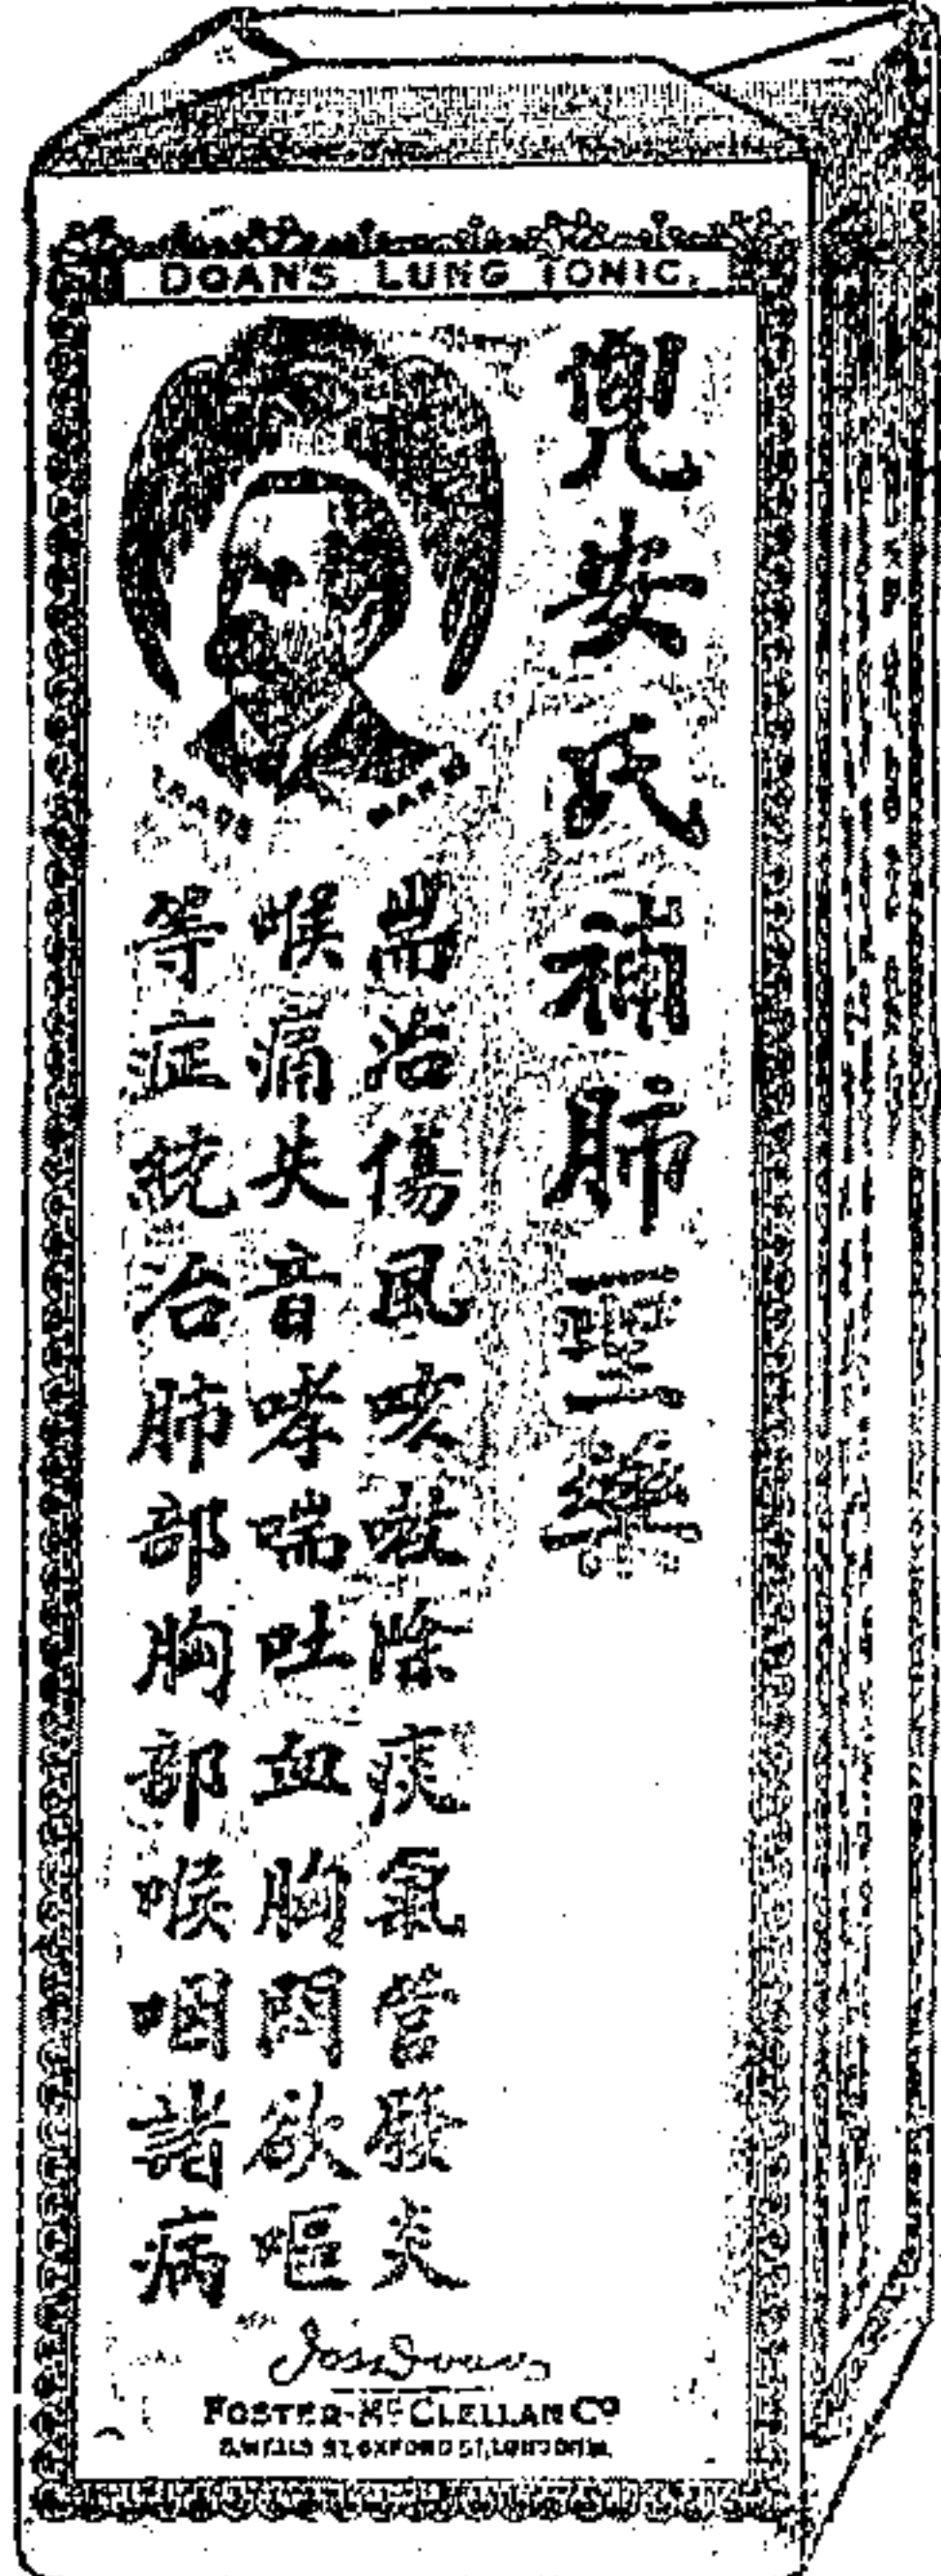 DOAN'S LUNG TONIC.
兜安氏補肺聖藥
TRADE MARK
耑治傷風咳嗽除痰氣管發炎
喉痛失音哮喘吐血胸悶欲嘔
等症統治肺部胸部喉咽諸病
Jas Doan
FOSTER-McCLELLAN Co
8, WELLS ST, OXFORD ST, LONDON